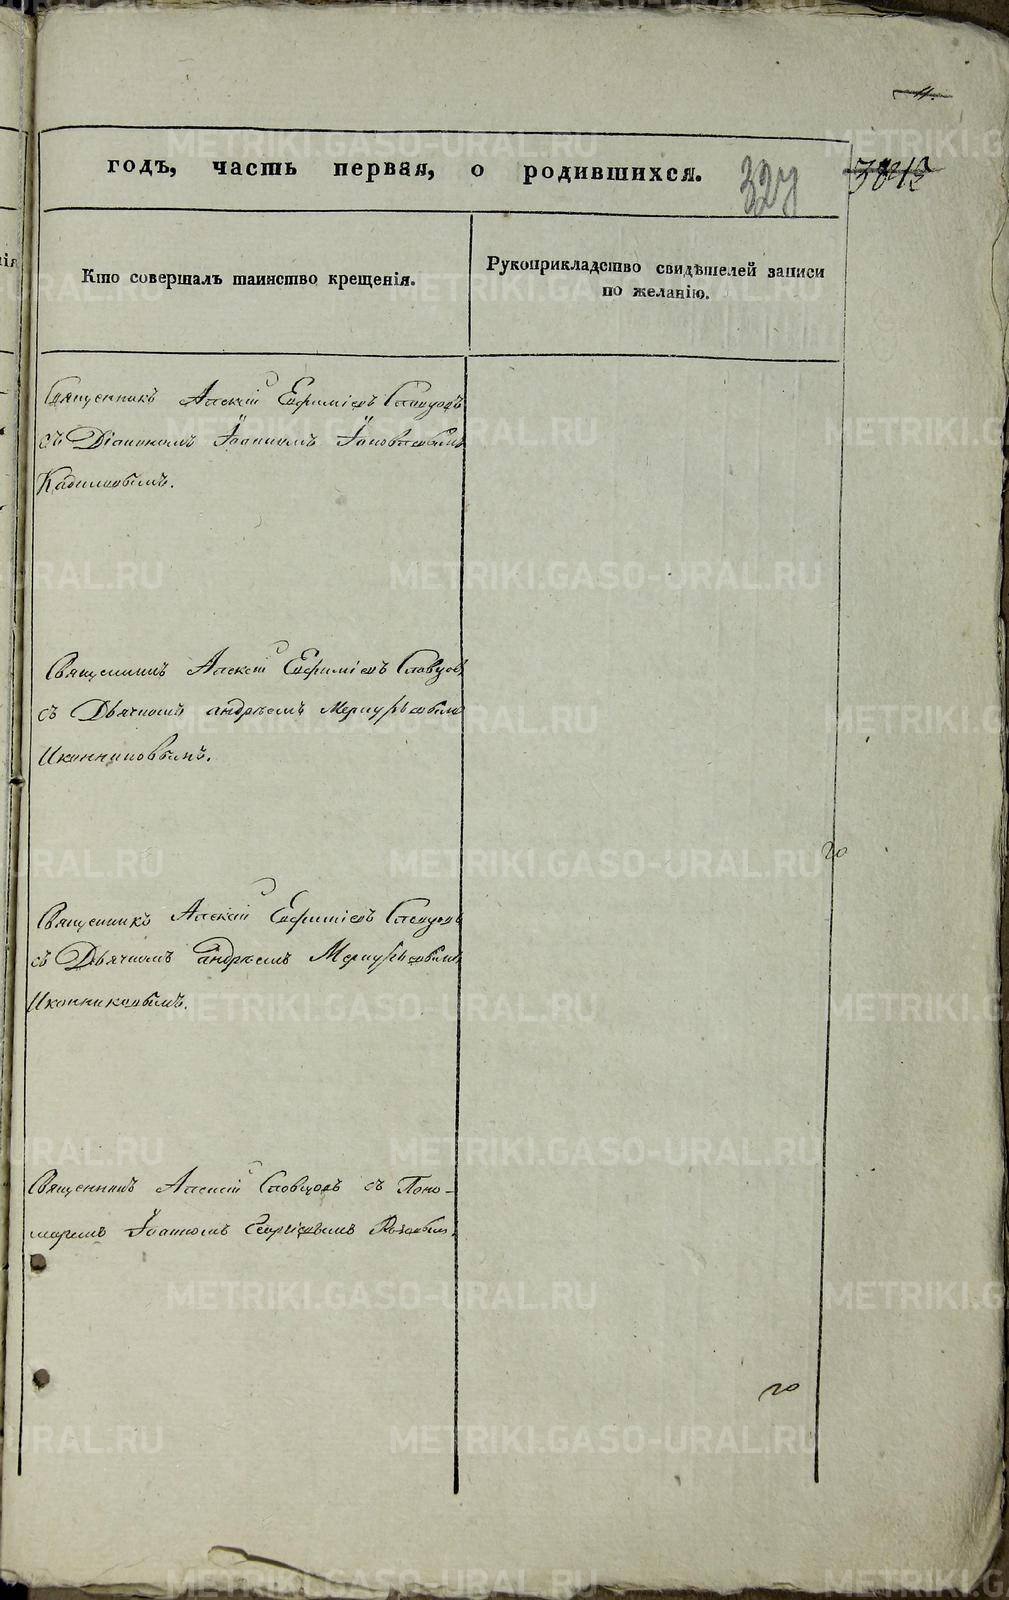 4.
годъ, часть первая, о родившихся.
327
Кто совершалъ таинство крещенія.
Рукоприкладство свидѣтелей записи
по желанію.
Священникъ Алексій Евфиміевъ Словцовъ
съ Діакономъ Іоанномъ
Священникъ Алексій Евфиміевъ Словцовъ
съ Дьячкомъ андреемъ Меркурьевымъ
Иконниковымъ.
Священникъ Алексій Евфиміевъ Словцовъ
съ Дьячкомъ андреемъ Меркурьевымъ
Иконниковымъ.
Священникъ Алексій Словцовъ съ Поно-
маремъ Іоанномъ Георгіевымъ
METRIKI.GASO-URAL.RU